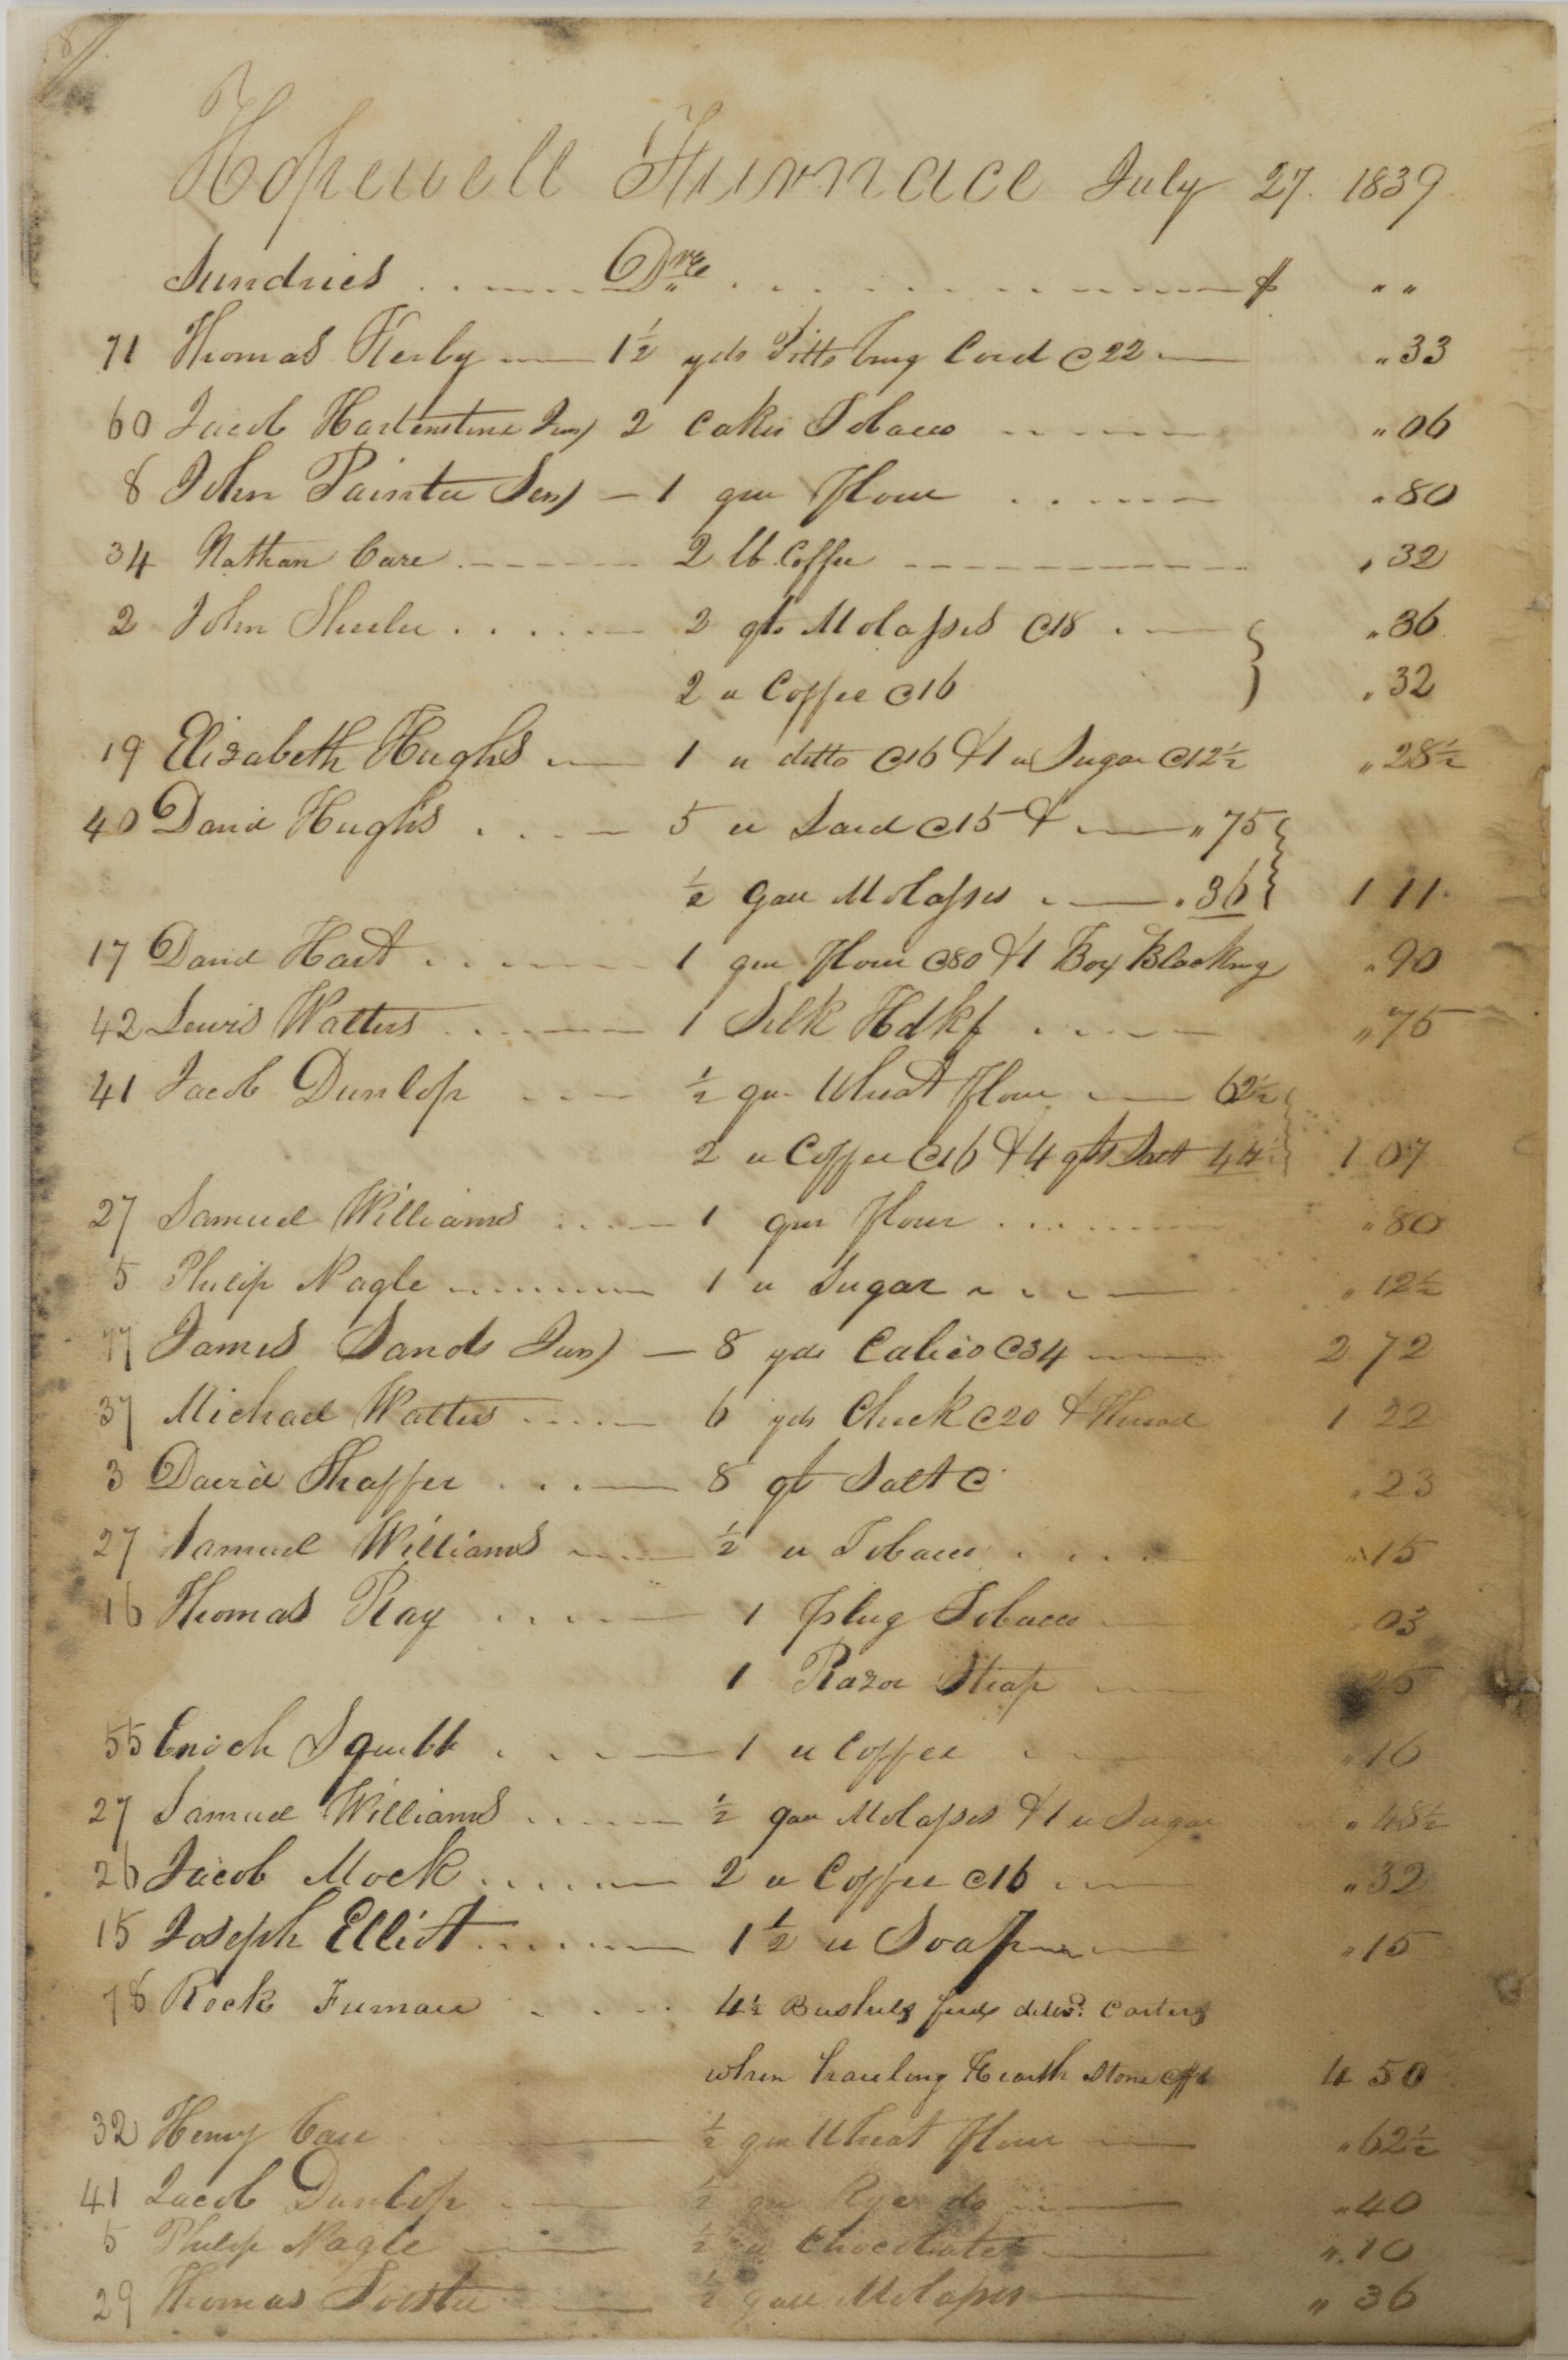 Hopewell Furnace July 27. 1839
Sundries Drs $ " "
71 Thomas Kerby 1½ yds Pittsburg Cord @22 " 33
60 Jacob Hartenstine Junr 2 Cakes Tobacco " 06
8 John Painter Senr 1 qur Flour " 80
34 Nathan Care 2 lb Coffee " 32
2 John Sheeler 2 qts Molasses @18 " 36
2 " Coffee @16 " 32
19 Elizabeth Hughs 1 " ditto @16 & 1 " Sugar @12½ " 28½
40 David Hughs 5 " Lard @15 & " 75
½ Gall Molasses " 36 1 11
17 David Hart 1 qur Flour @80 & 1 Box Blacking " 90
42 Lewis Walters 1 Silk Hdkf " 75
41 Jacob Dunlop ½ qur Wheat Flour 62½
2 " Coffee @16 & 4 qts Salt 44 1 07
27 Samuel Williams 1 qur Flour " 80
5 Philip Nagle 1 " Sugar " 12½
77 James Sands Junr 8 yds Calico @34 2 72
37 Michael Walters 6 yds Check @20 & Thread 1 22
3 David Shaffer 8 qt Salt @ " 23
27 Samuel Williams ½ " Tobacco " 15
16 Thomas Ray 1 plug Tobacco " 03
1 Razor Strap 25
55 Enoch Squibb 1 " Coffee " 16
27 Samuel Williams ½ gall Molasses & 1 " Sugar " 48½
26 Jacob Mock 2 " Coffee @16 " 32
15 Joseph Elliot 1½ " Soap " 15
78 Rock Furnace 4½ Bushels feed delivd. Carters
when hauling Hearth Stone 4 50
32 Henry Care ½ qur Wheat Flour " 62½
41 Jacob Dunlop ½ qur Rye do " 40
5 Philip Nagle ½ " Chocolate " 10
29 Thomas Foster ½ gall Molasses " 36